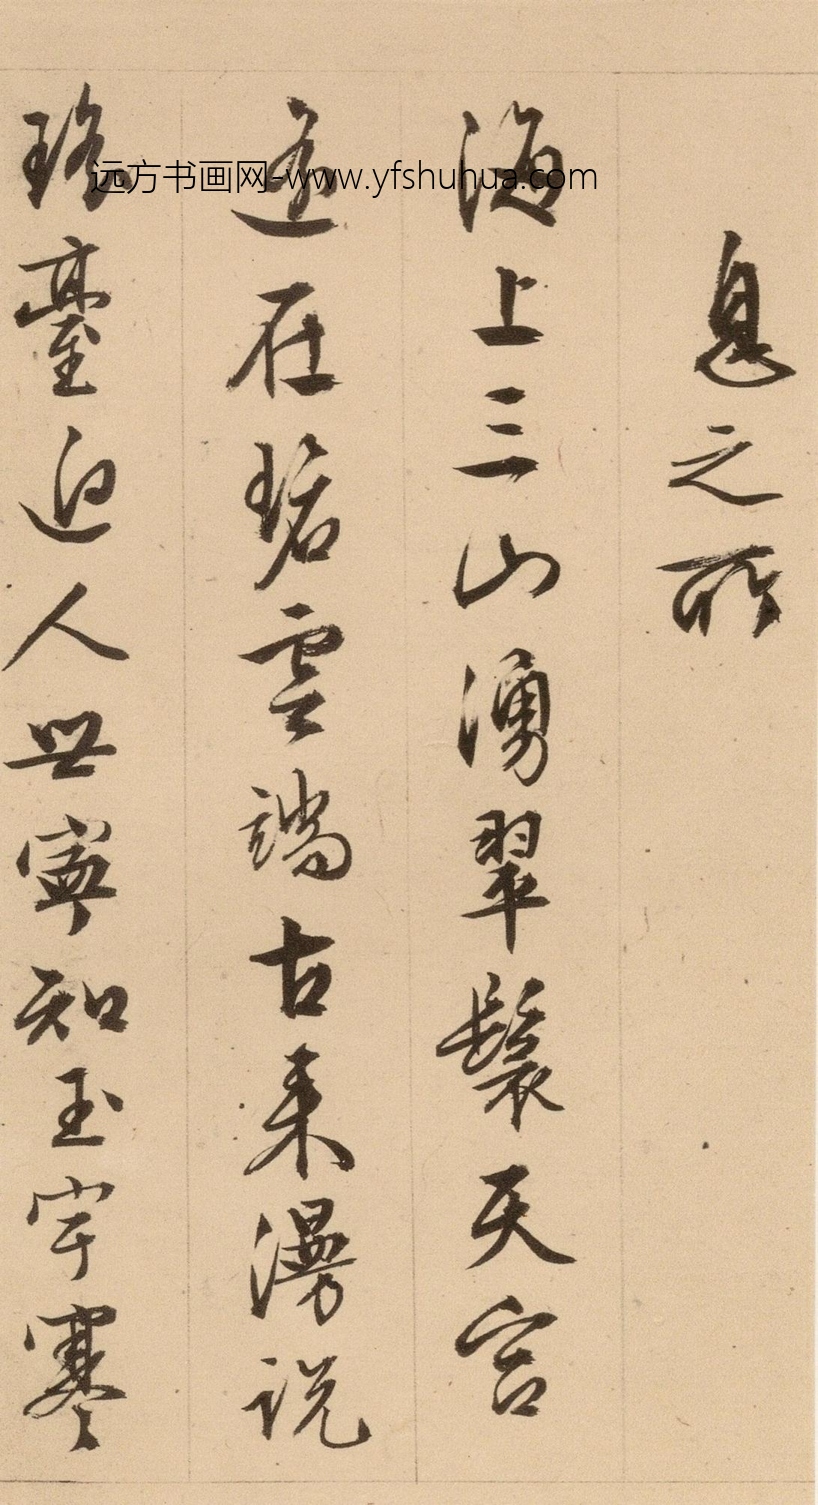 息之所
海上三山湧翠鬟天宮
遥在碧雲端古来漫說
瑤臺迥人世寧知玉宇寒
远方书画网-www.yfshuhua.com